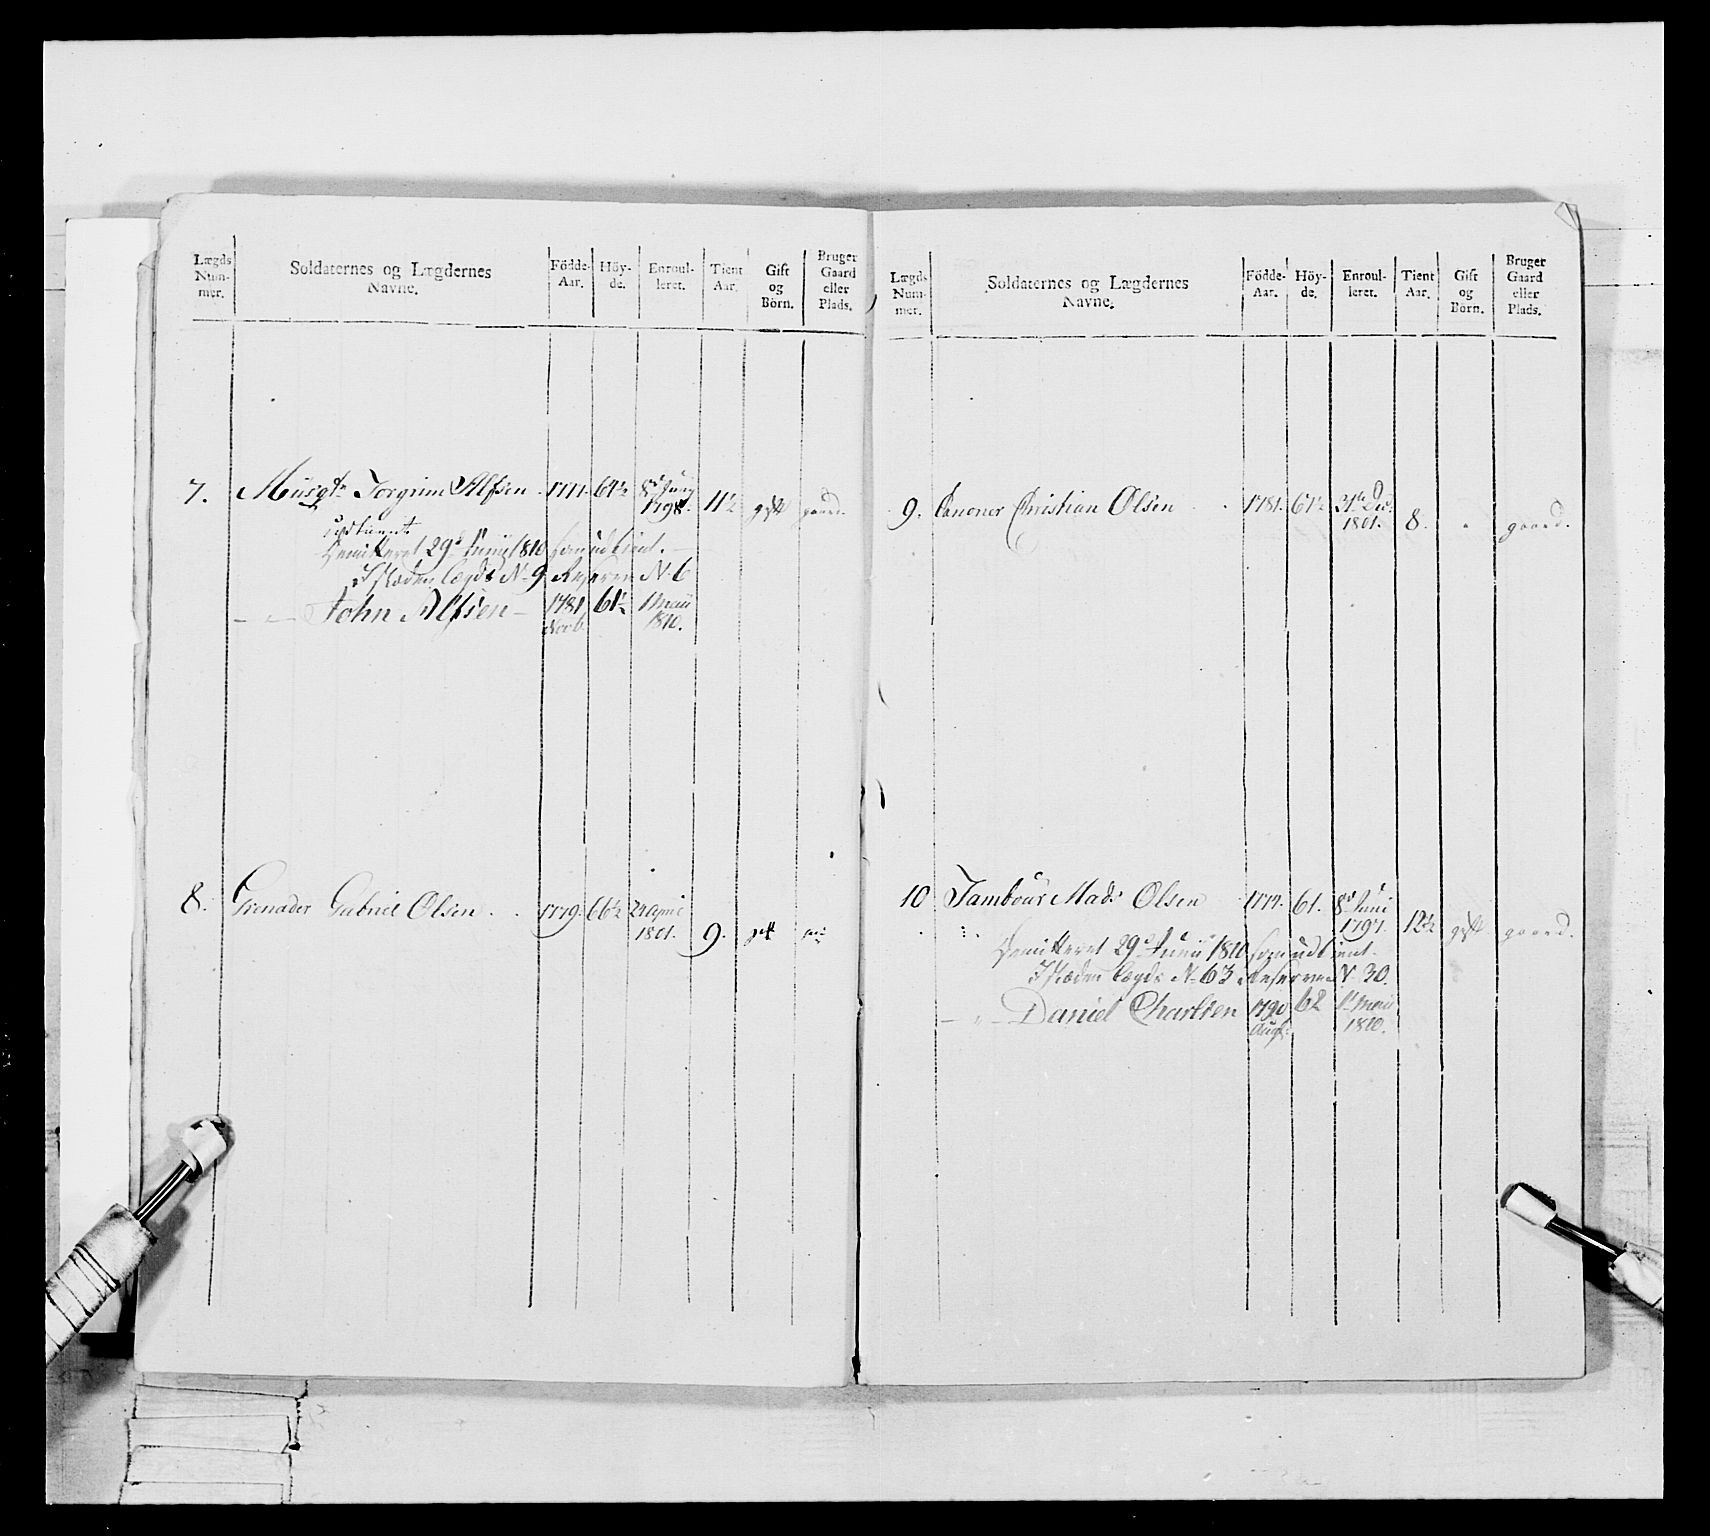 Lægds Num- mer.
Soldaternes og Lægdernes Navne.
Födde- Aar.
Höy- de.
Enroul- leret.
Tient Aar.
Gift og Börn.
Bruger Gaard eller Plads.
7. Musqtr Torgrim Alfsen 64½ 8d Juny 1798. 11½ gift gaard.
Demitteret 29d Junij 1810 som udtient.
I Steden Lægds N. 9 Reserve N. 6
— „ — John Alfsen — 1781 61½ 1 Maii
Novb. 1810.
8. Grenader Gabriel Olsen . . 1779. 66½ 24 April
1801. 9. gift
Lægds Num- mer.
Soldaternes og Lægdernes Navne.
Födde- Aar.
Höy- de.
Enroul- leret.
Tient Aar.
Gift og Börn.
Bruger Gaard eller Plads.
9. Canoner Christian Olsen . . 1781. 61½
1801. 8. „ gaard.
10 Tambour Mads Olsen 1777. 61. 8d Juni
1797. 12½ gift gaard.
Demitteret 29d Junii 1810 som udtient.
I Steden Lægds N. 63 Reserve N. 30.
— „ — Daniel Charlsen 1790 62 1t Maii
Augt. 1810.